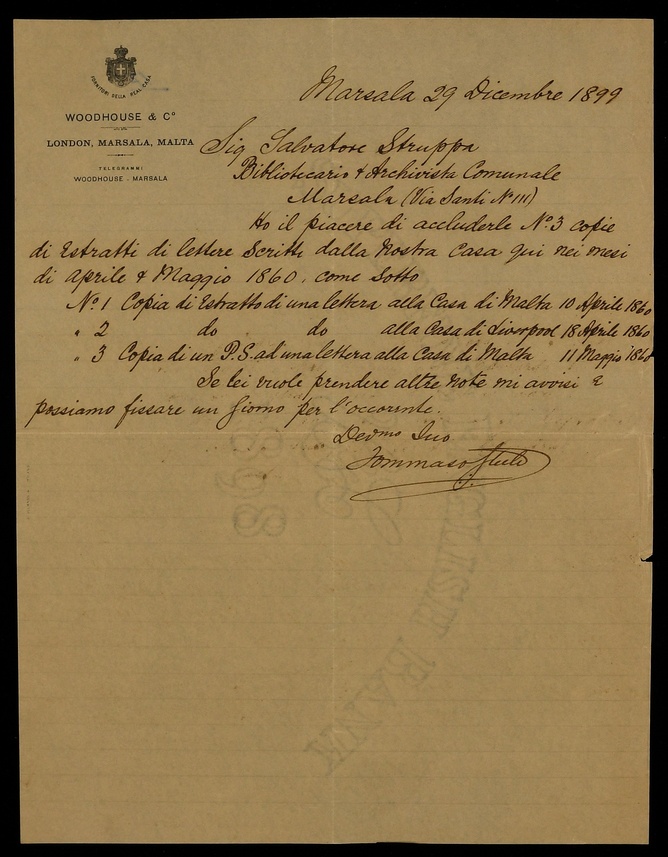 FORNITORI DELLA REAL CASA
WOODHOUSE & Cº
LONDON, MARSALA, MALTA
TELEGRAMMI
WOODHOUSE - MARSALA
Marsala 29 Dicembre 1899
Sig Salvatore Struppa
Bibliotecario & Archivista Comunale
Marsala (Via Santi Nº III)
Ho il piacere di accluderle Nº 3 copie
di Estratti di lettere Scritte dalla Nostra Casa qui nei mesi
di Aprile & Maggio 1860, come Sotto
Nº 1 Copia di Estratto di una lettera alla Casa di Malta 10 Aprile 1860
" 2 do do alla Casa di Liverpool 18 Aprile 1860
" 3 Copia di un P.S. ad una lettera alla Casa di Malta 11 Maggio 1860
Se lei vuole prendere altre note mi avvisi e
possiamo fissare un Giorno per l'occorente.
Devmo Suo
Tommaso